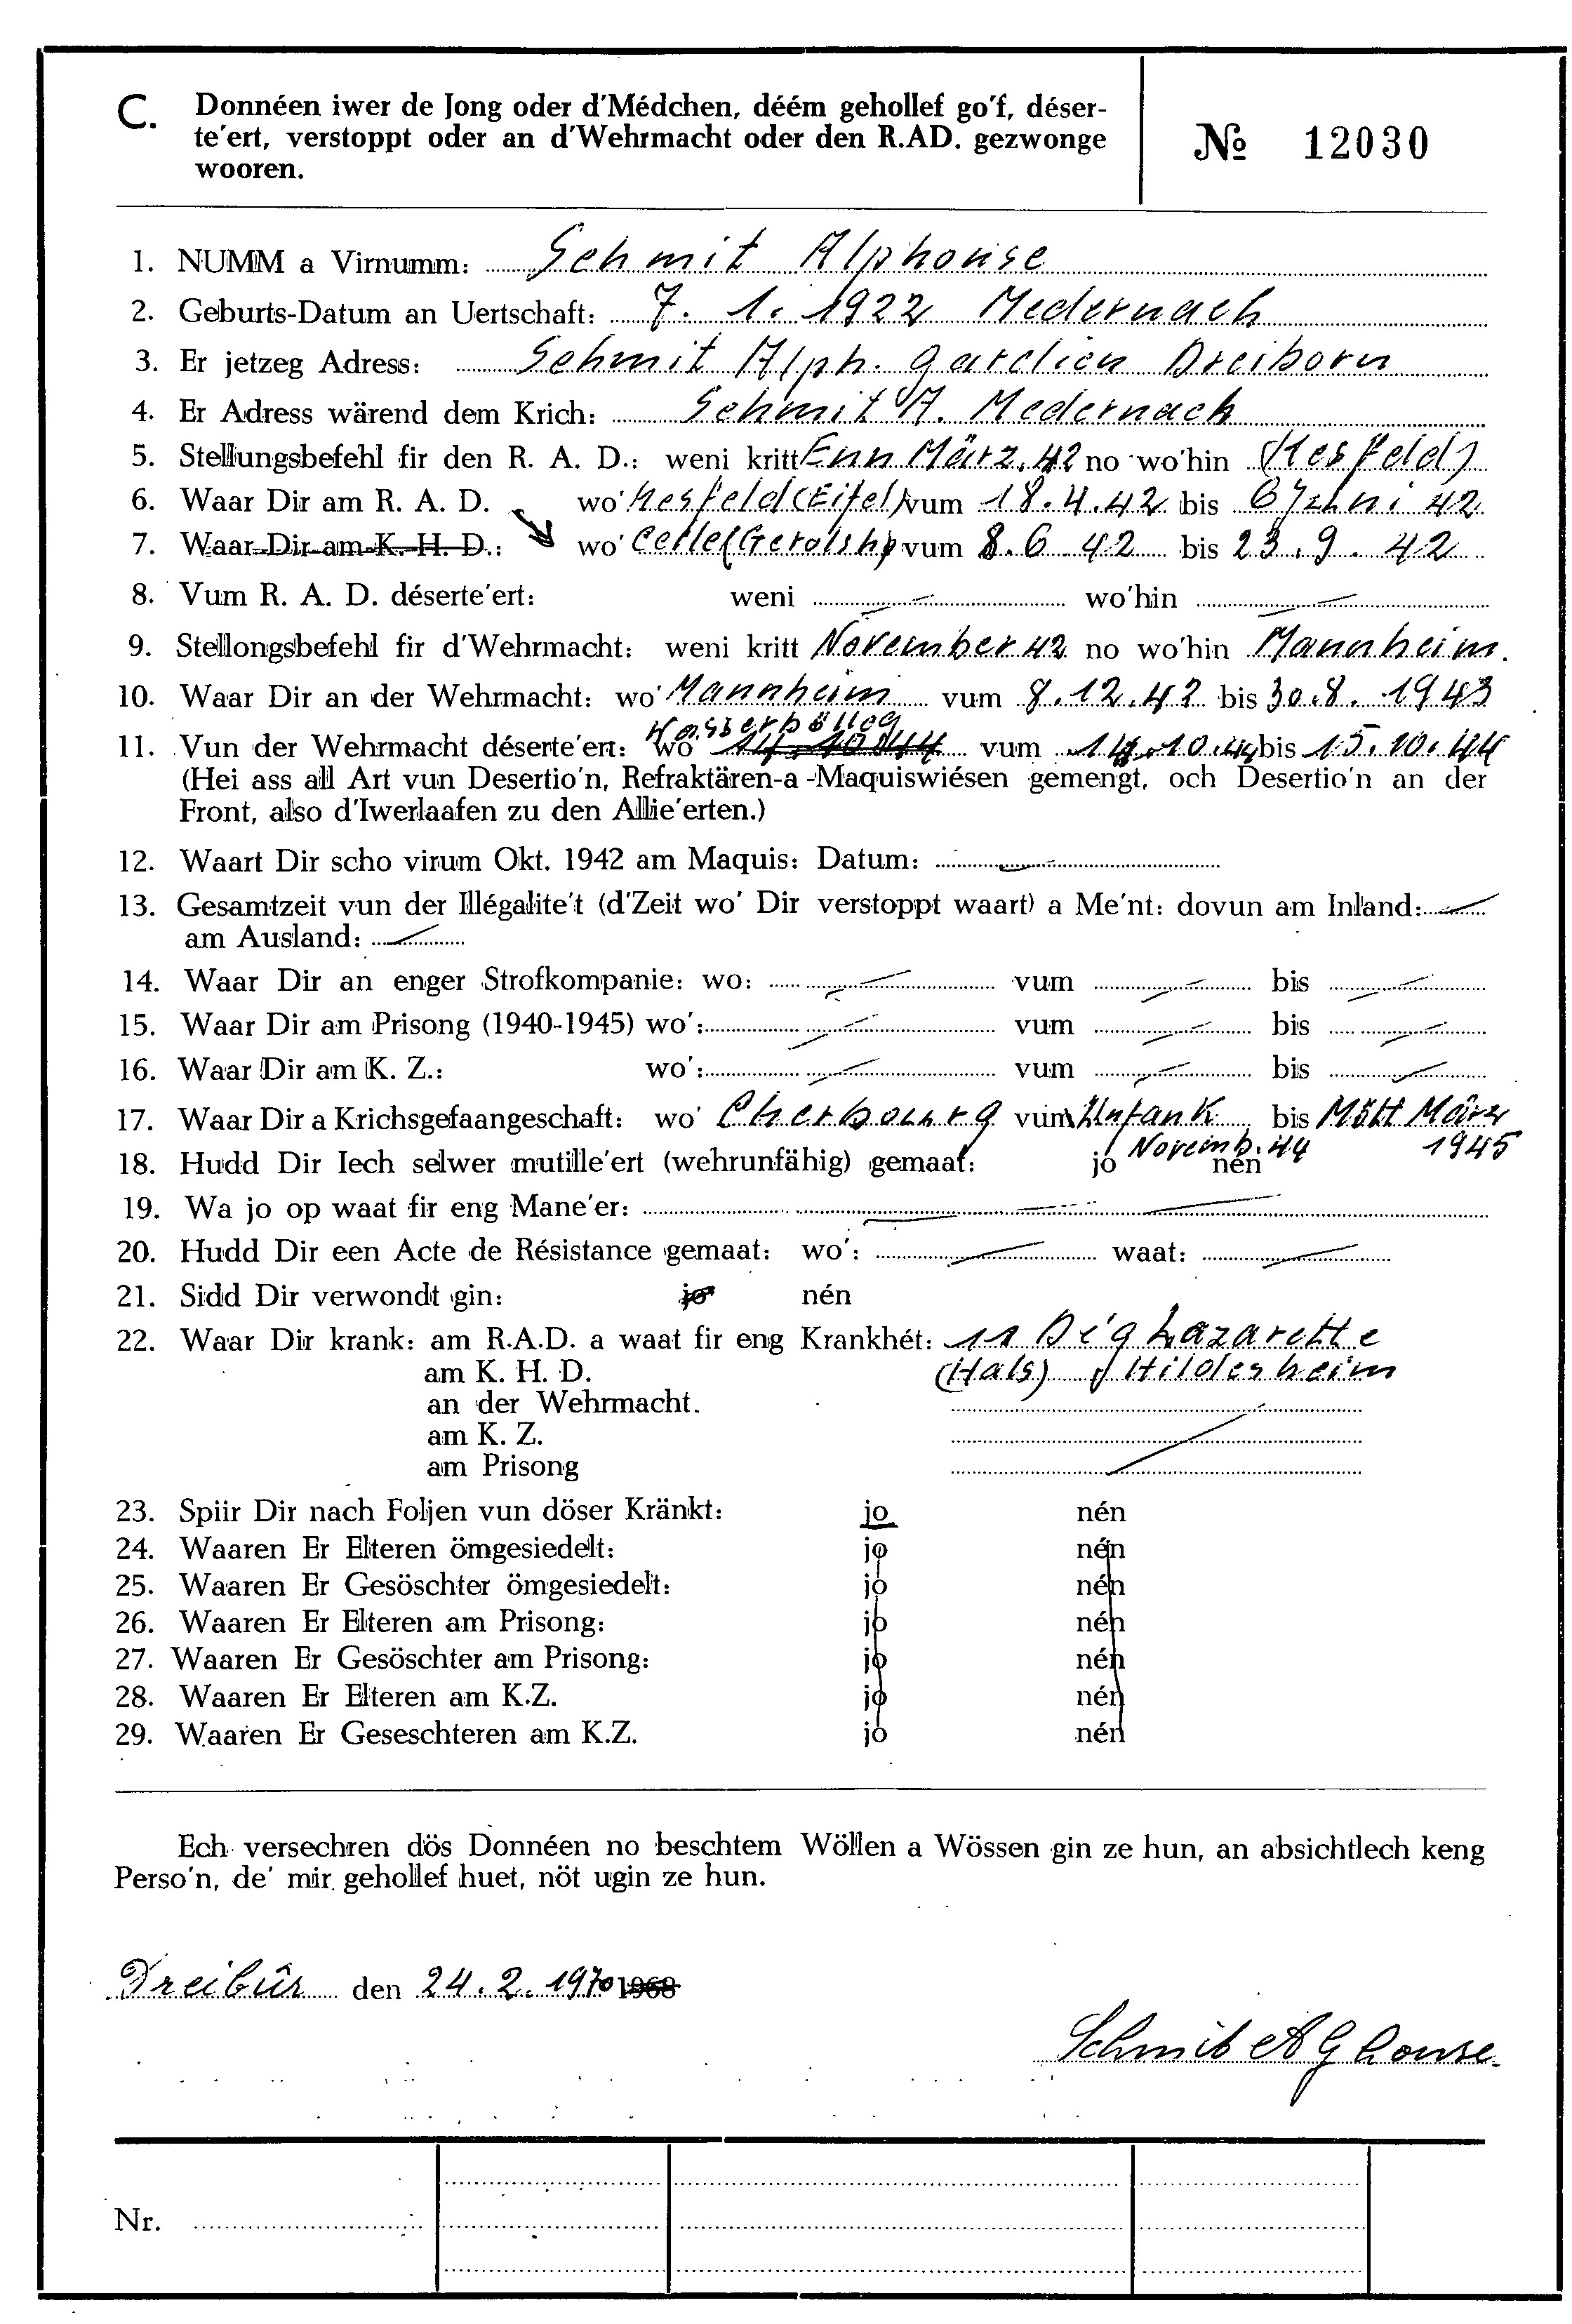 C. Donnéen iwer de Jong oder d'Médchen, déém gehollef go'f, déser-
te'ert, verstoppt oder an d'Wehrmacht oder den R.AD. gezwonge
wooren.
№ 12030
1. NUMM a Virnumm: Schmit Alphonse
2. Geburts-Datum an Uertschaft: 7. 1. 1922 Medernach
3. Er jetzeg Adress: Schmit Alph. gardien Dreiborn
4. Er Adress wärend dem Krich: Schmit A. Medernach
5. Stellungsbefehl fir den R. A. D.: weni kritt Enn März. 42 no wo'hin (Hesfeld)
6. Waar Dir am R. A. D. wo' Hesfeld (Eifel) vum 18.4.42 bis 6 Juni 42
7. Waar Dir am K. H. D.: wo' vum 8.6 42 bis 23.9.42
8. Vum R. A. D. déserte'ert: weni wo'hin
9. Stellongsbefehl fir d'Wehrmacht: weni kritt November 42 no wo'hin Mannheim.
10. Waar Dir an der Wehrmacht: wo' Mannheim vum 8.12.42 bis 30.8.1943
Wasserbölleg
11. Vun der Wehrmacht déserte'ert: wo' 14.10.44 vum 14.10.44 bis 15.10.44
(Hei ass all Art vun Desertio'n, Refraktären-a-Maquiswiésen gemengt, och Desertio'n an der
Front, also d'Iwerlaafen zu den Allie'erten.)
12. Waart Dir scho virum Okt. 1942 am Maquis: Datum:
13. Gesamtzeit vun der Illégalite't (d'Zeit wo' Dir verstoppt waart) a Me'nt: dovun am Inland:
am Ausland:
14. Waar Dir an enger Strofkompanie: wo: vum bis
15. Waar Dir am Prisong (1940-1945) wo': vum bis
16. Waar Dir am K. Z.: wo': vum bis
17. Waar Dir a Krichsgefaangeschaft: wo' Cherbourg vum Unfank bis Mött März
Novemb. 44 1945
18. Hudd Dir Iech selwer mutille'ert (wehrunfähig) gemaat: jo nén
19. Wa jo op waat fir eng Mane'er:
20. Hudd Dir een Acte de Résistance gemaat: wo': waat:
21. Sidd Dir verwondt gin: jo nén
22. Waar Dir krank: am R.A.D. a waat fir eng Krankhét: 11 Dég Lazarette
am K. H. D. (Hals) Hildesheim
an der Wehrmacht.
am K. Z.
am Prisong
23. Spiir Dir nach Foljen vun döser Kränkt: jo nén
24. Waaren Er Elteren ömgesiedelt: jo nén
25. Waaren Er Gesöschter ömgesiedelt: jo nén
26. Waaren Er Elteren am Prisong: jo nén
27. Waaren Er Gesöschter am Prisong: jo nén
28. Waaren Er Elteren am K.Z. jo nén
29. Waaren Er Geseschteren am K.Z. jo nén
Ech versechren dös Donnéen no beschtem Wöllen a Wössen gin ze hun, an absichtlech keng
Perso'n, de' mir gehollef huet, nöt ugin ze hun.
Dreibûr den 24.2.1970 1968
Schmit Alphonse
Nr.